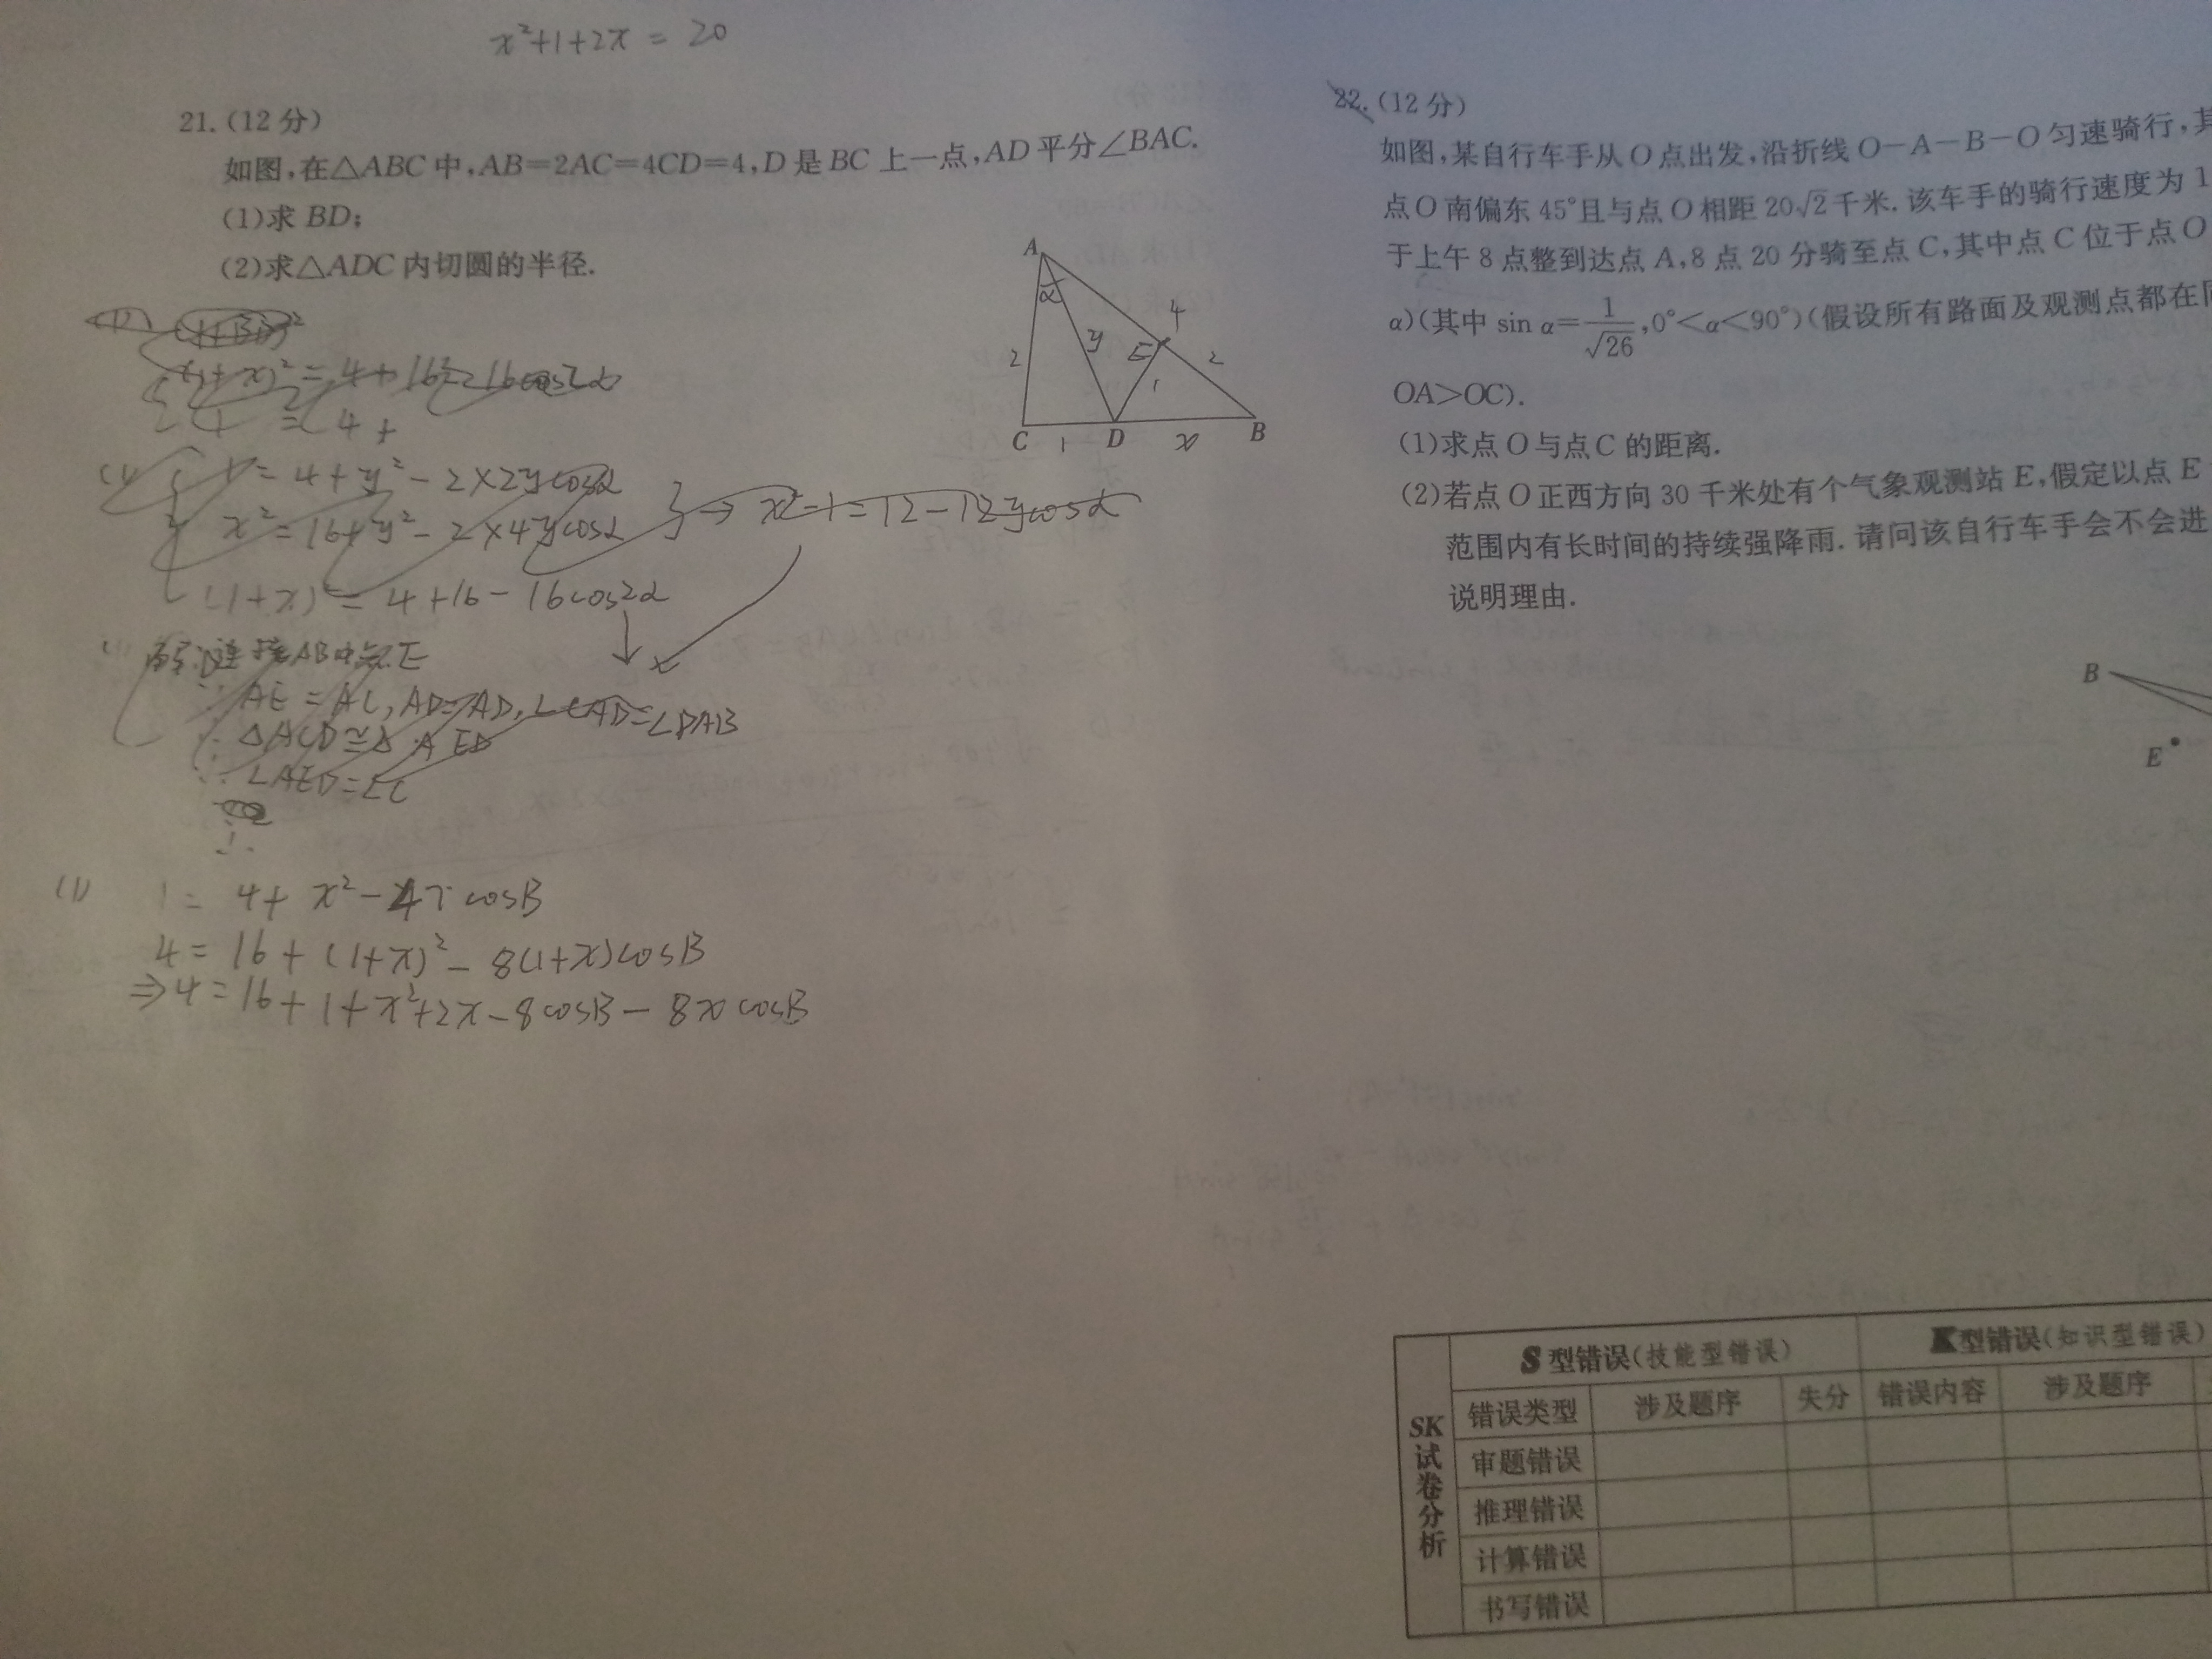 x²+1+2x = 20
21.(12分)
如图,在△ABC中,AB=2AC=4CD=4,D是BC上一点,AD平分∠BAC.
(1)求BD;
(2)求△ADC内切圆的半径.
A
α
4
y
E
2
2
1
C
1
D
x
B
(1)
(1+x)² = 4+16-16cos2α
1 = 4+
1 = 4+y²-2×2ycosα
x² = 16+y²-2×4ycosα
→ x²-1=12-12ycosα
(1+x)² = 4+16-16cos2α
连接AB中点E
AE=AC, AD=AD, ∠CAD=∠DAB
△ACD≌△AED
∠AED=∠C
∴
(1) 1 = 4+x²-4xcosB
4 = 16+(1+x)²-8(1+x)cosB
⇒4=16+1+x²+2x-8cosB-8xcosB
22.(12分)
如图,某自行车手从O点出发,沿折线O-A-B-O匀速骑行,其
点O南偏东45°且与点O相距20√2千米.该车手的骑行速度为1
于上午8点整到达点A,8点20分骑至点C,其中点C位于点O
α)(其中sin α=1/√26,0°<α<90°)(假设所有路面及观测点都在同
OA>OC).
(1)求点O与点C的距离.
(2)若点O正西方向30千米处有个气象观测站E,假定以点E
范围内有长时间的持续强降雨.请问该自行车手会不会进
说明理由.
B
E
SK试卷分析
S型错误(技能型错误) K型错误(知识型错误)
错误类型 涉及题序 失分 错误内容 涉及题序
审题错误
推理错误
计算错误
书写错误